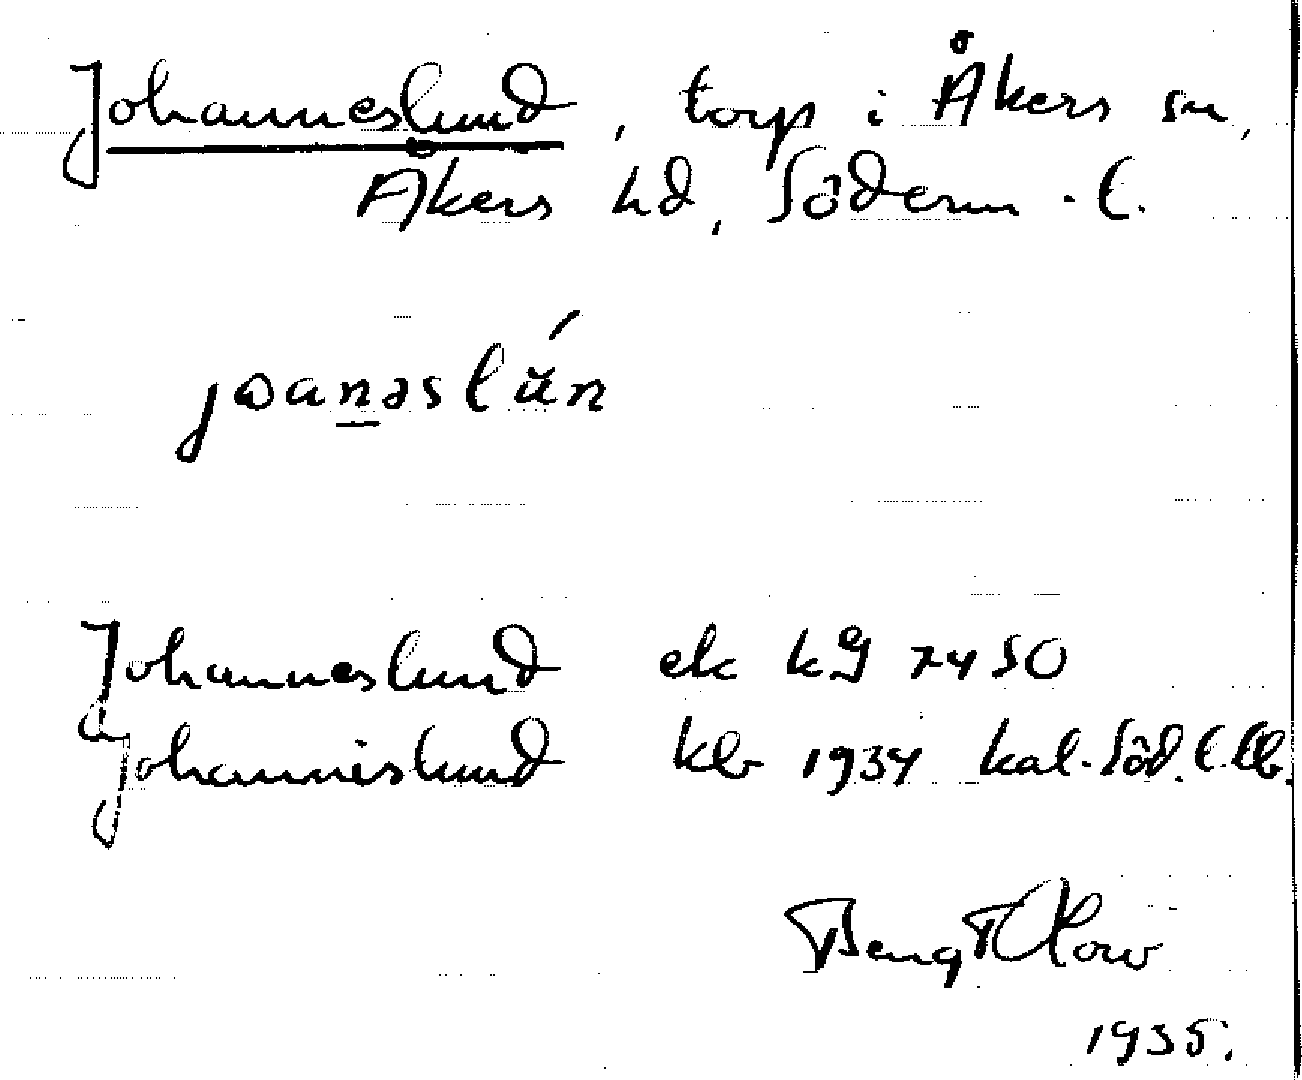 Johanneslund, torp i Åkers sn,
Åkers hd, Söderm.l.
Johanneslund ek kg 7450
Johannislund klr 1934 kal. Söd. l.
Bengt
1935.